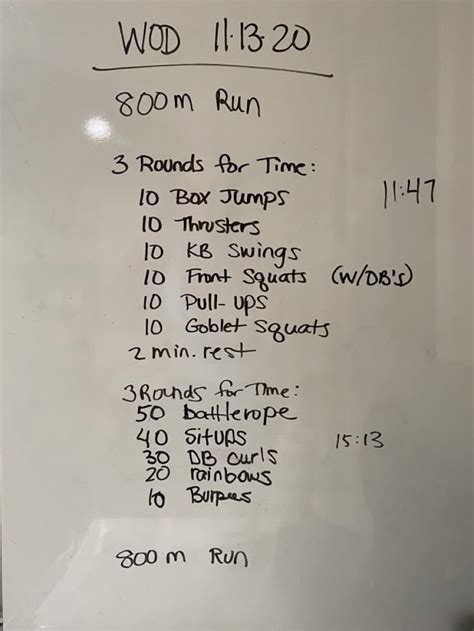 WOD 11.13.20
800m Run
3 Rounds for Time:
10 Box Jumps 11:47
10 Thrusters
10 KB Swings
10 Front Squats (W/DB's)
10 Pull-ups
10 Goblet Squats
2 min. rest
3 Rounds for Time:
50 battlerope
40 Situps 15:13
30 DB curls
20 rainbows
10 Burpees
800m Run